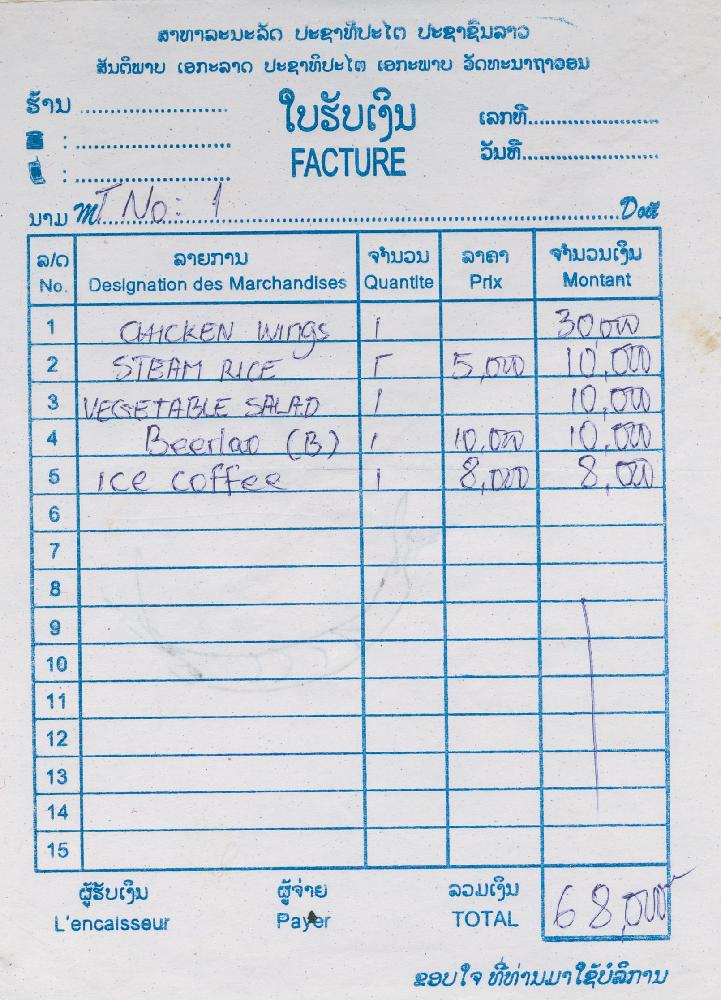 ສາທາລະນະລັດ ປະຊາທິປະໄຕ ປະຊາຊົນລາວ
ສັນຕິພາບ ເອກະລາດ ປະຊາທິປະໄຕ ເອກະພາບ ວັດທະນາຖາວອນ
ຮ້ານ ........................
ໃບຮັບເງິນ
FACTURE
ເລກທີ........................
ວັນທີ........................
ນາມ M T No: 1 Doit
ລ/ດ ລາຍການ ຈຳນວນ ລາຄາ ຈຳນວນເງິນ
No. Designation des Marchandises Quantite Prix Montant
1 CHICKEN WINGS 1 30,000
2 STEAM RICE 5,000 10,000
3 VEGETABLE SALAD 1 10,000
4 Beerlao (B) 1 10,000 10,000
5 ICE COFFEE 1 8,000 8,000
6
7
8
9
10
11
12
13
14
15
ຜູ້ຮັບເງິນ ຜູ້ຈ່າຍ ລວມເງິນ
L'encaisseur Payer TOTAL 68,000
ຂອບໃຈ ທີ່ທ່ານມາໃຊ້ບໍລິການ